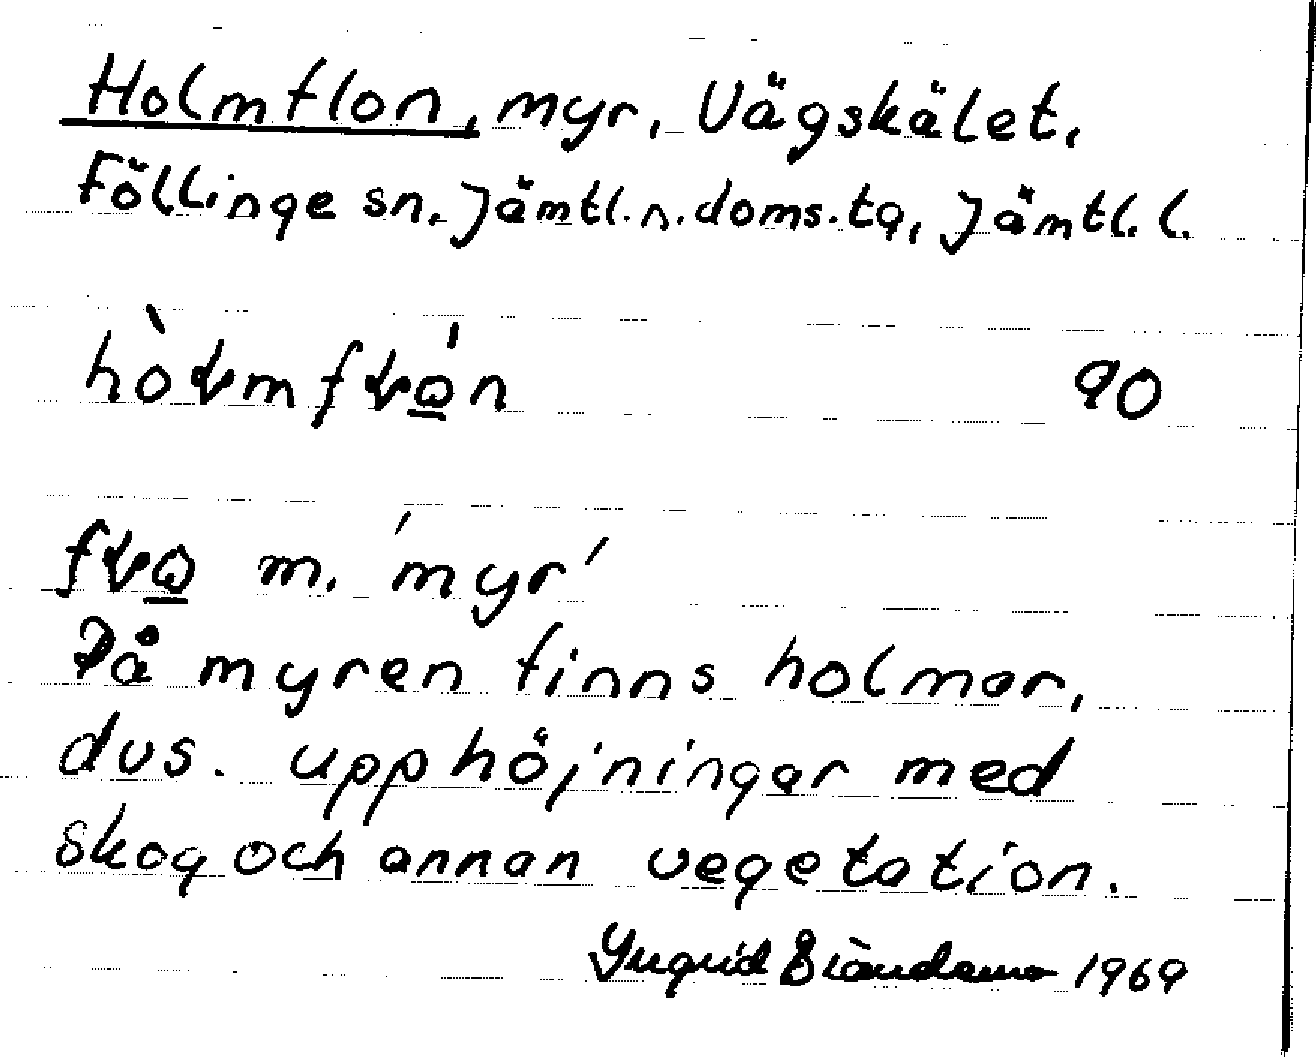 Holmflon, myr, Vägskälet,
Föllinge sn. Jämtl. n. doms. tg, Jämtl. l.
90
m. 'myr'
På myren finns holmar,
dvs. upphöjningar med
skog och annan vegetation.
Yngrid 1969